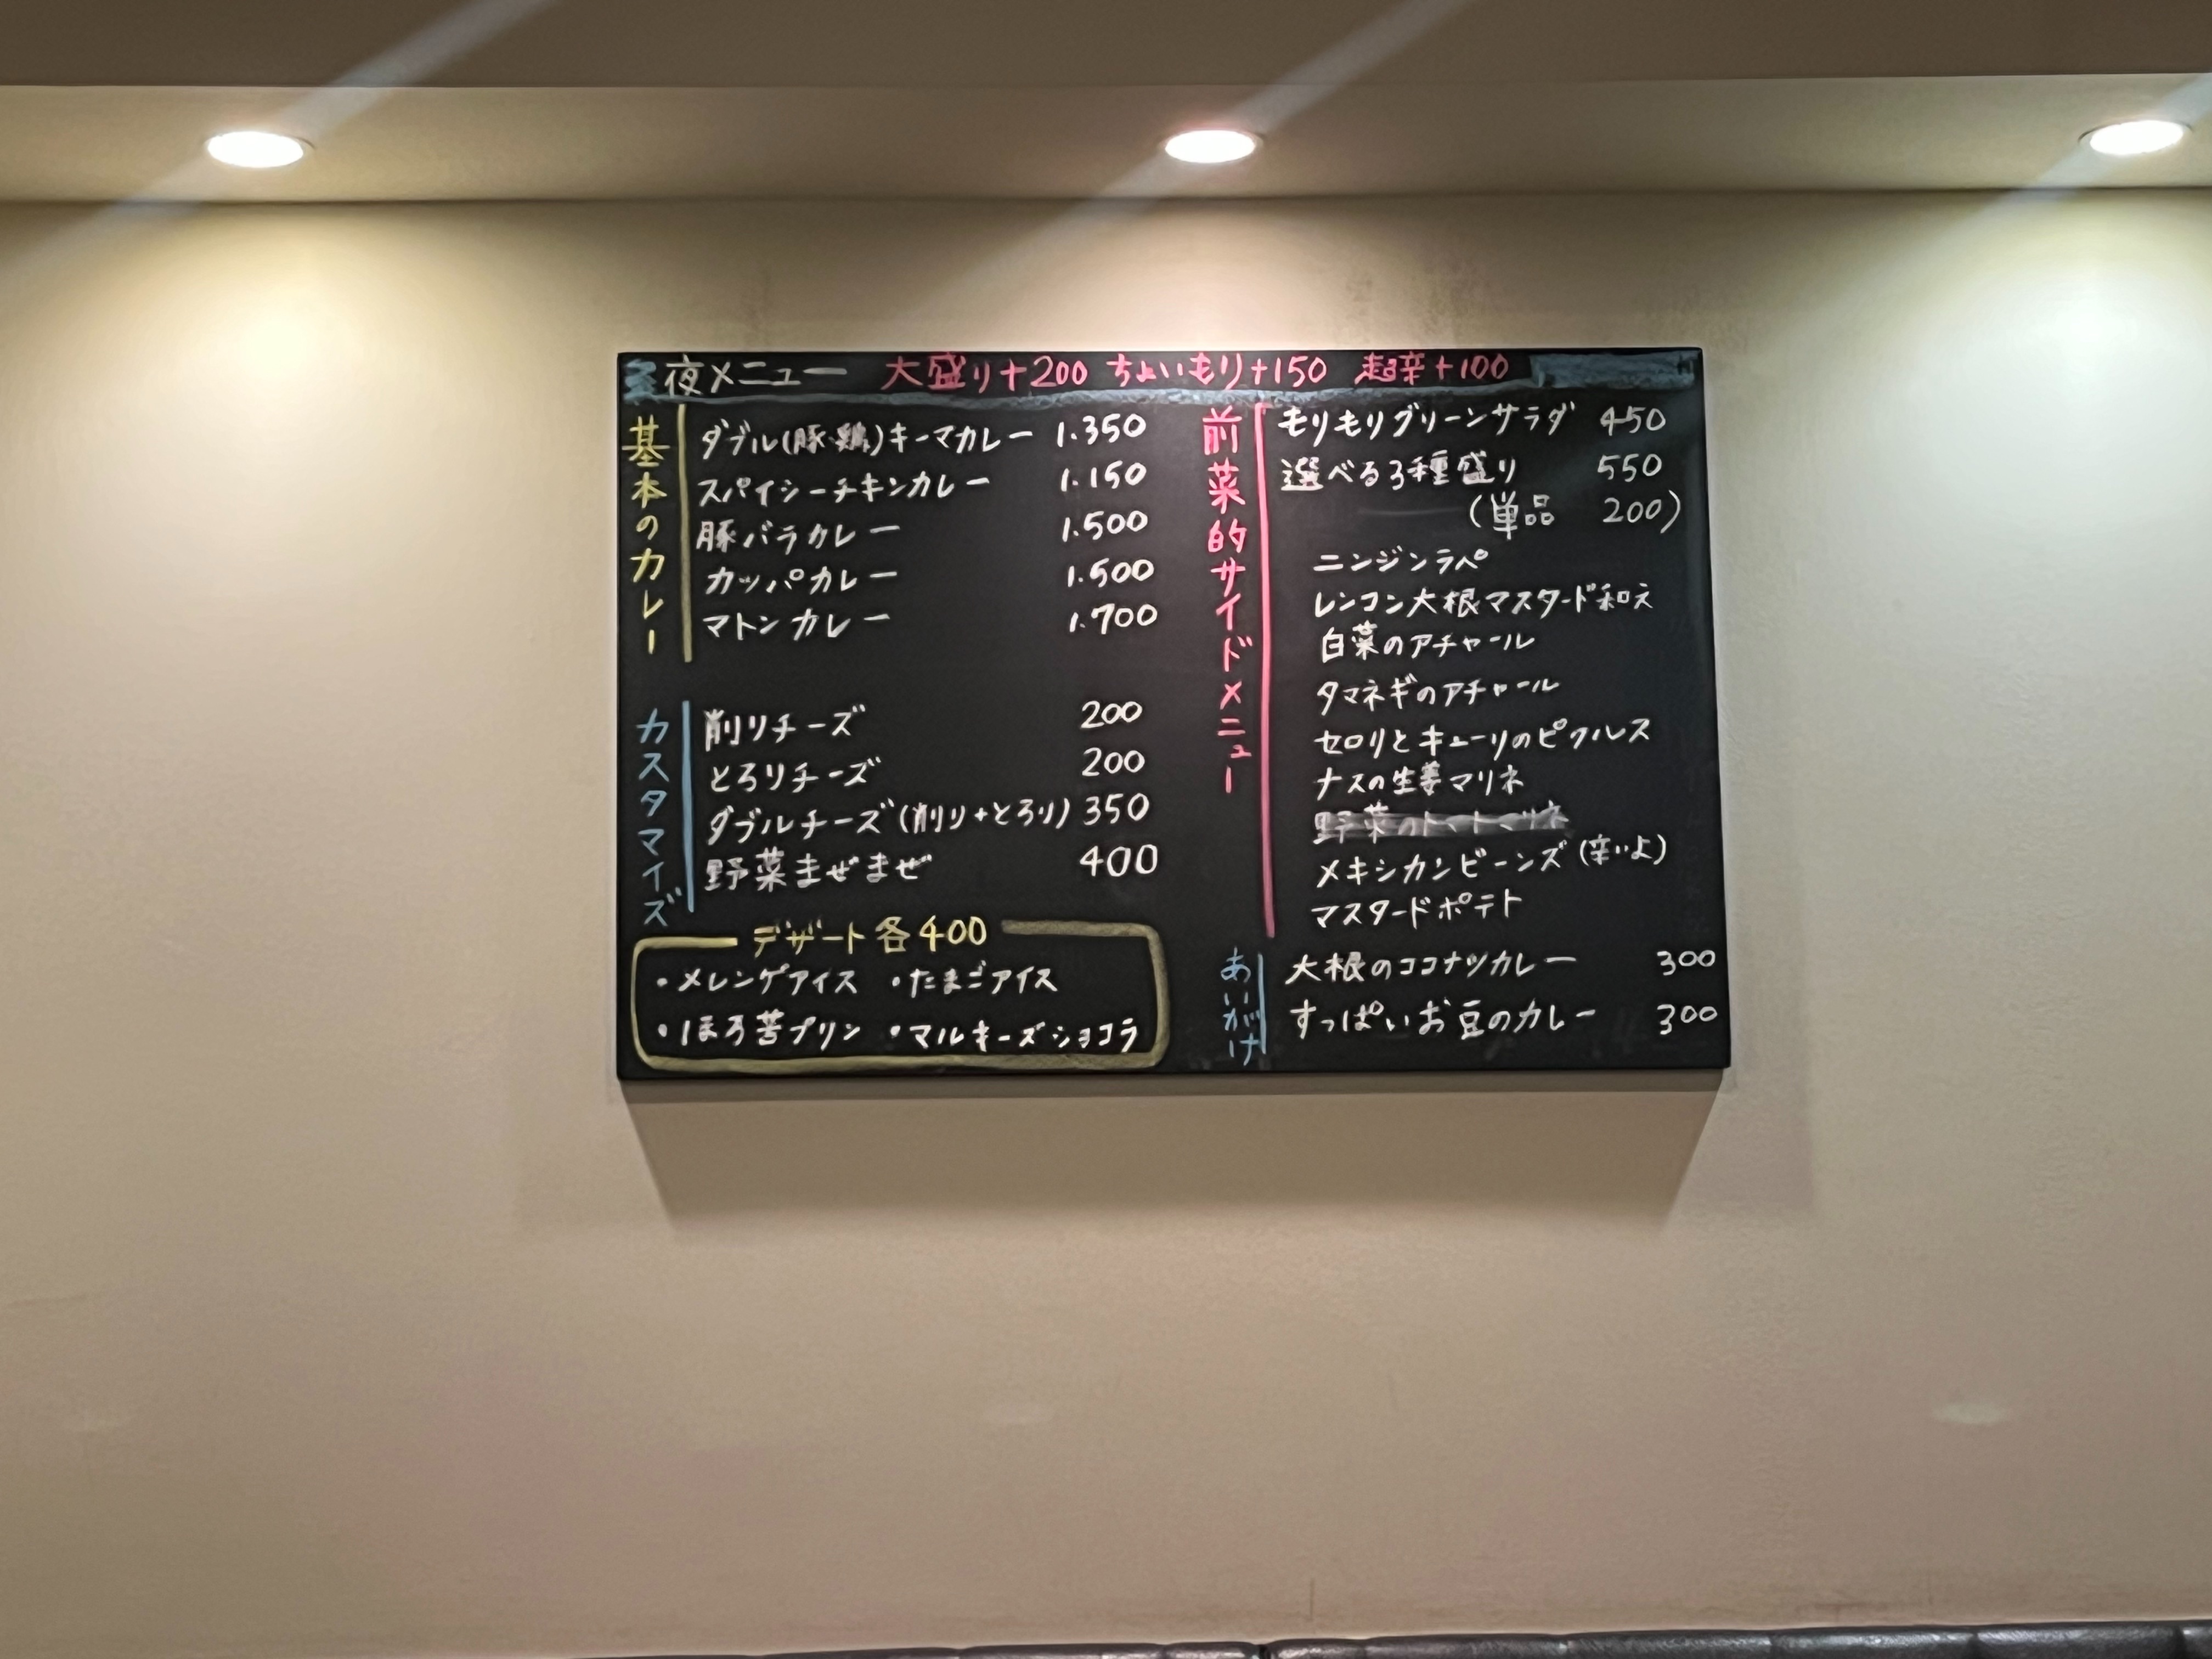 夜メニュー 大盛り+200 ちょいもり+150 超辛+100
基本のカレー
ダブル(豚・鶏)キーマカレー 1.350
スパイシーチキンカレー 1.150
豚バラカレー 1.500
カッパカレー 1.500
マトンカレー 1.700
カスタマイズ
削りチーズ 200
とろりチーズ 200
ダブルチーズ(削り+とろり) 350
野菜まぜまぜ 400
デザート各400
・メレンゲアイス ・たまごアイス
・ほろ苦プリン ・マルキーズショコラ
前菜的サイドメニュー
もりもりグリーンサラダ 450
選べる3種盛り 550
(単品 200)
ニンジンラペ
レンコン大根マスタード和え
白菜のアチャール
タマネギのアチャール
セロリとキューリのピクルス
ナスの生姜マリネ
野菜のトマトマリネ
メキシカンビーンズ(辛いよ)
マスタードポテト
あいがけ
大根のココナツカレー 300
すっぱいお豆のカレー 300